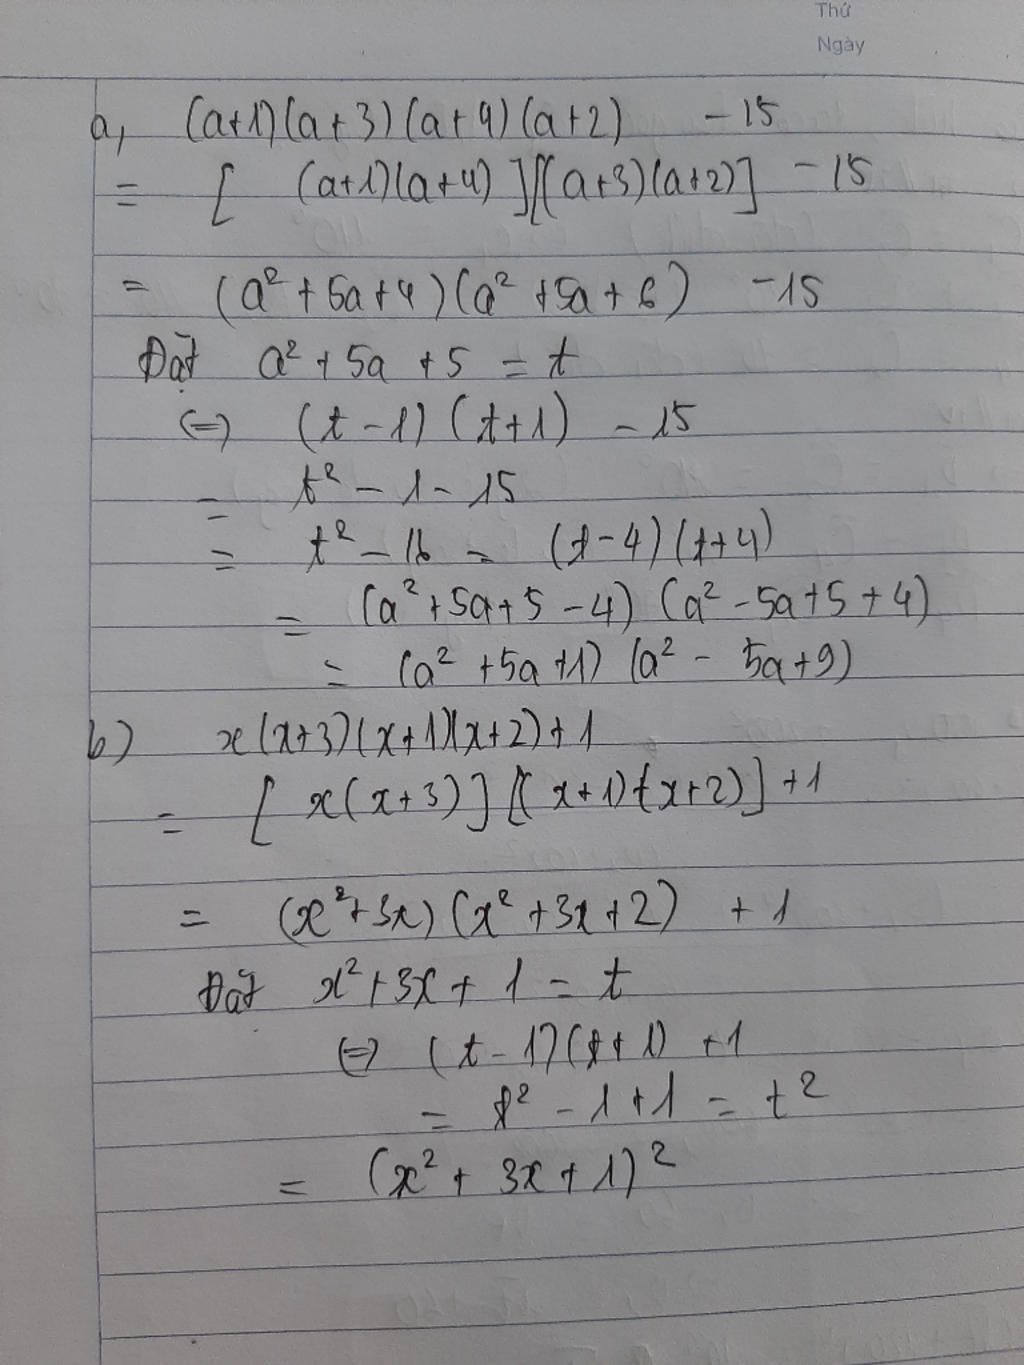 Thứ
Ngày
a, (a+1)(a+3)(a+4)(a+2) - 15
= [ (a+1)(a+4) ][(a+3)(a+2)] - 15
= (a² + 5a + 4)(a² + 5a + 6) - 15
Đặt a² + 5a + 5 = t
(=) (t - 1)(t + 1) - 15
= t² - 1 - 15
= t² - 16 = (t - 4)(t + 4)
= (a² + 5a + 5 - 4)(a² - 5a + 5 + 4)
= (a² + 5a + 1)(a² - 5a + 9)
b) x(x+3)(x+1)(x+2) + 1
= [ x(x+3)][(x+1)(x+2)] + 1
= (x² + 3x)(x² + 3x + 2) + 1
Đặt x² + 3x + 1 = t
(=) (t - 1)(t + 1) + 1
= t² - 1 + 1 = t²
= (x² + 3x + 1)²